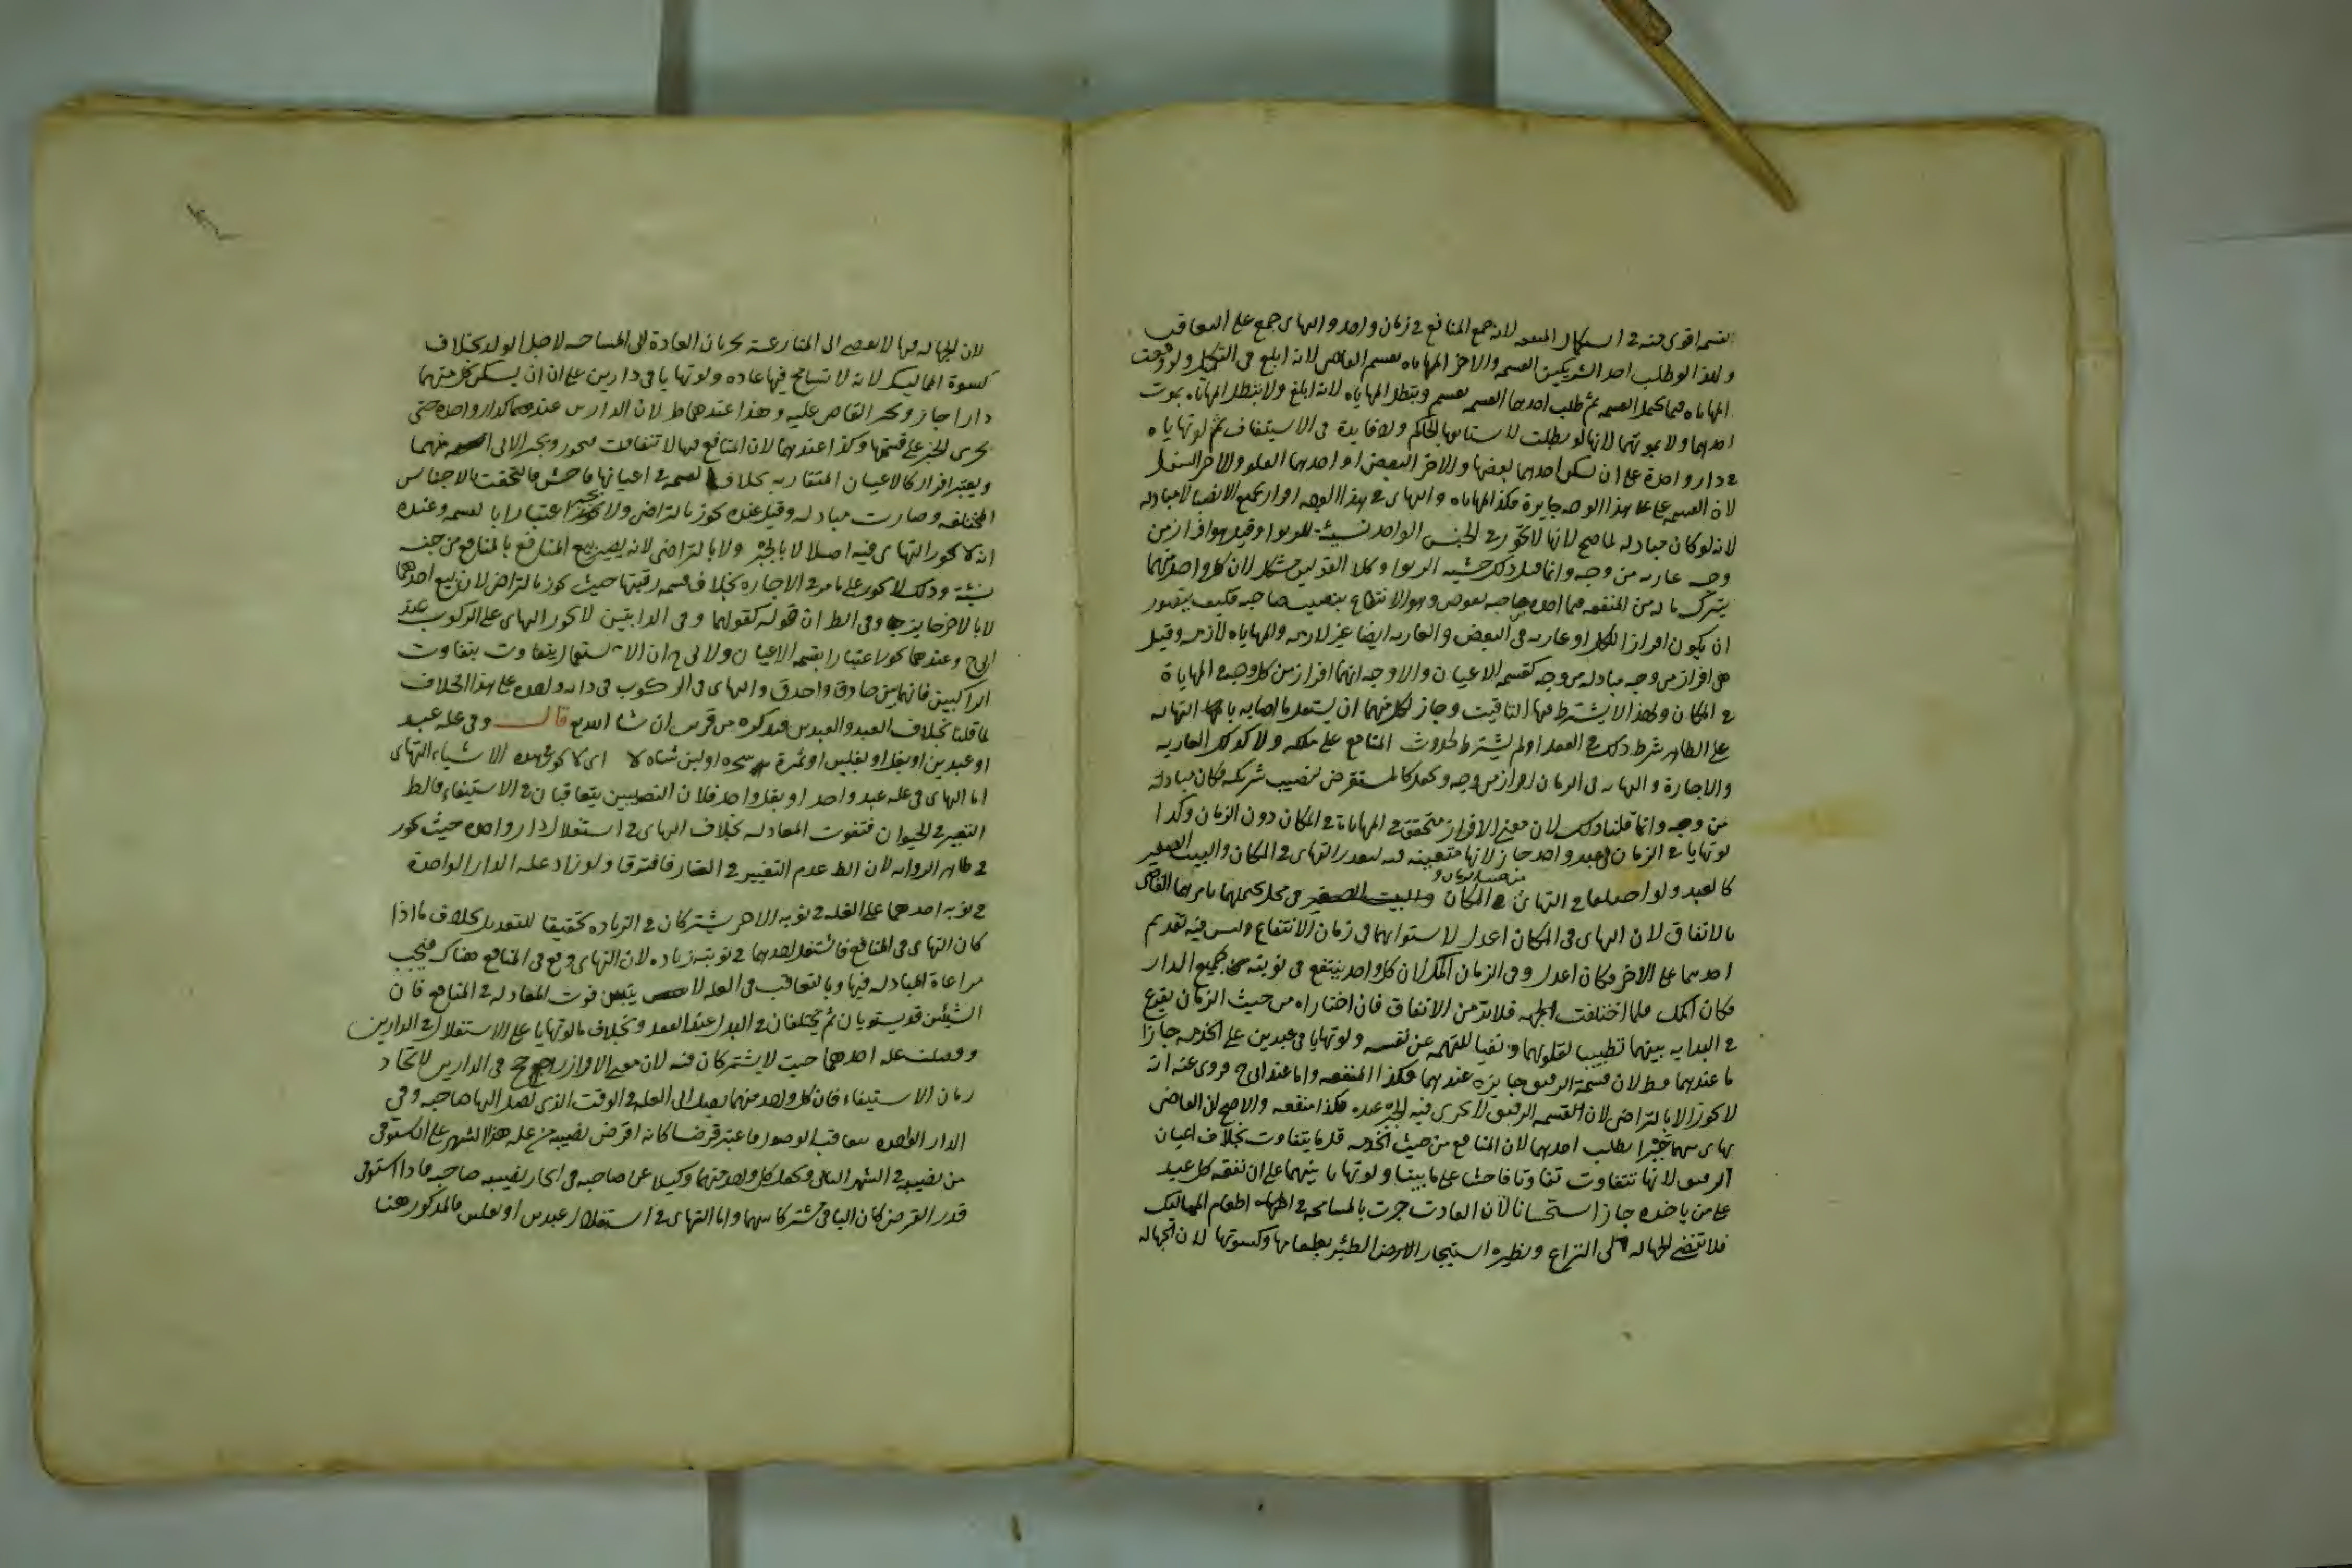 القسم اقوى منه في استكمال المنفعه لانه جمع المنافع في زمان واحد والتهاى جمع على التعاقب
ولهذا لو طلب احد الشريكين القسمه والاخر المهاياه يقسم القاضى لانه ابلغ فى التكميل ولو وقعت
المهاياه فيما يحتمل القسمه ثم طلب احدهما القسمه يقسم ويبطل المهاياه لانه ابلغ ولا يبطل المهاياه بموت
احدهما ولا بموتهما لانها لو بطلت لاستانفها الحاكم ولا فايدة فى الاستيناف ثم لو تهايا
في دار واحدة على ان يسكن احدهما بعضها والاخر البعض او احدهما العلو والاخر السفل
لان القسمه على هذا الوجه جايزة فكذا المهاياه والتهاى في هذا الوجه افراز لجميع الانصبا لا مبادله
لانه لو كان مبادله لما صح لانها لا تجوز في الجنس الواحد نسيئة للربوا وقيل هو افراز من
وجه عاريه من وجه وانما قيل ذلك خشيه الربوا وكلا القولين مشكل لان كل واحد منهما
يترك ما له من المنفعه فيما اخذه صاحبه بعوض وهو الانتفاع بنصيب صاحبه فكيف يتصور
ان يكون افرازا للكل او عاريه فى البعض والعاريه ايضا غير لازمه والمهاياه لازمه وقيل
هى افراز من وجه مبادله من وجه كقسمه الاعيان والاوجه انها افراز من كل وجه في المهاياة
في المكان ولهذا لا يشترط فيها التاقيت وجاز لكل منهما ان يستغل ما اصابه بالمهاياه
على الظاهر شرط ذلك في العقد او لم يشترط لحدوث المنافع على ملكه ولا كذلك العاريه
والاجارة والتهايه فى الزمان افراز من وجه ويجعل كالمستقرض لنصيب شريكه فكان مبادله
من وجه وانما قلنا ذلك لان معنى الافراز متحقق في المهاياة في المكان دون الزمان وكذا
لو تهايا في الزمان فى عبد واحد جاز لانها متعينه فيه لتعذر التهاى في المكان والبيت الصغير
كالعبد ولو اختلفا في التهاى في المكان والبيت الصغير فى محل يحتملهما يامرهما القاضى
بالاتفاق لان التهاى فى المكان اعدل لاستوائهما فى زمان الانتفاع وليس فيه تقديم
احدهما على الاخر فكان اعدل وفى الزمان اكمل لان كل واحد ينتفع فى نوبته بجميع الدار
فكان اكمل فلما اختلفت الجهه فلا بد من الاتفاق فان اختاراه من حيث الزمان يقرع
في البدايه بينهما تطييبا لقلوبهما ونفيا للتهمه عن نفسه ولو تهايا فى عبدين على الخدمه جازا
ما عندهما فظ لان قسمة الرقيق جايزه عندهما فكذا المنفعه واما عند ابى ح فروى عنه انه
لا يجوز الا بالتراضى لان القسمه الرقيق لا يجرى فيه الجبر عنده فكذا منفعه والاصح ان القاضى
يهاى بينهما جبرا بطلب احدهما لان المنافع من حيث الخدمه قل ما يتفاوت بخلاف اعيان
الرقيق لانها تتفاوت تفاوتا فاحشا على ما بينا ولو تهايا بينهما على ان نفقه كل عبد
على من ياخذه جاز استحسانا لان العادت جرت بالمسامحه في اطعام المماليك
فلا تفضى الجهاله الى النزاع ونظيره استيجار الظئر بطعامها وكسوتها لان الجهاله
لان الجهاله فيها لا يفضى الى المنازعة بجريان العادة الى المسامحه لاجل الولد بخلاف
كسوة المماليك لانه لا تسامح فيها عاده ولو تهايا فى دارين على ان يسكن كل منهما
دارا جاز ويجبر القاضى عليه وهذا عندهما ظ لان الدارين عندهما كدار واحده حتى
يجرى الجبر على قسمتها وكذا عندهما لان المنافع فيها لا تتفاوت فيجوز ويجبر الابى منهما
ويعتبر افراز كالاعيان المتقاربه بخلاف قسمه في اعيانها فاحش فالتحقت بالاجناس
المختلفه وصارت مبادله وقيل عنده يجوز بالتراضى ولا يجبر اعتبارا بالقسمه وعنده
انه لا يجوز التهاى فيه اصلا لا بالجبر ولا بالتراضى لانه يصير بيع المنافع بالمنافع من جنسه
نسيئة وذلك لا يجوز على ما مر في الاجاره بخلاف قسمه رقبتها حيث يجوز بالتراضى لان بيع احدهما
بالاخر جايز وفى الظ ان قوله كقولهما وفى الدابتين لا يجوز التهاى على الركوب عند
ابى ح وعندهما يجوز اعتبارا بقسمه الاعيان ولابى ح ان الاستعمال يتفاوت بتفاوت
الراكبين فانهما بين حاذق واخرق والتهاى فى الركوب فى دابه واحده على هذا الخلاف
لما قلنا بخلاف العبد والعبدين من قريب ان شا الله تع قال وفى غله عبد
او عبدين او بغل او بغلين او ثمرة شجره او لبن شاه لا اى لا يجوز فى هذه الاشياء التهاى
اما التهاى فى غله عبد واحد او بغل واحد فلان النصيبين يتعاقبان في الاستيفاء فالظ
التغير في الحيوان فتفوت المعادله بخلاف التهاى في استغلال دار واحده حيث يجوز
في ظاهر الروايه لان الظ عدم التغيير في العقار فافترقا ولو زاد غله الدار الواحدة
في نوبه احدهما على الغله في نوبه الاخر يشتركان في الزياده تحقيقا للتعديل بخلاف ما اذا
كان التهاى فى المنافع فاستغل احدهما في نوبته زياده لان التهاى وقع فى المنافع هناك فيجب
مراعاة المبادله فيها وبالتعاقب فى الغله لا يتبين فوت المعادله في المنافع فان
الشيئين قد يستويان ثم يختلفان في البدل عند العقد وبخلاف ما لو تهايا على الاستغلال في الدارين
وفضلت غله احدهما حيث لا يشتركان فيه لان معنى الافراز راجح فى الدارين لاتحاد
زمان الاستيفاء فان كل واحد منهما يصل الى الغله في الوقت الذى يصل اليها صاحبه وفى
الدار الواحده يتعاقب الوصول فاعتبر قرضا كانه اقرض نصيبه من غله هذا الشهر على ان يستوفى
من نصيبه في الشهر الثانى ويجعل كل واحد منهما وكيلا عن صاحبه فى ايجار نصيبه صاحبه فاذا استوفى
قدر القرض كان الباقى مشتركا بينهما واما التهاى في استغلال عبدين او بغلين فالمذكور هنا